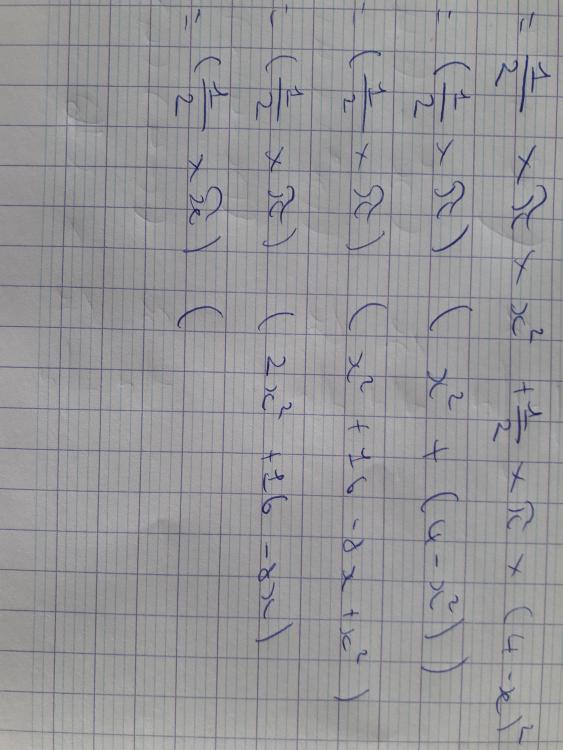 = 1/2 × π × x² + 1/2 × π × (4 - x)²
= (1/2 × π) ( x² + (4 - x²) )
= (1/2 × π) ( x² + 16 - 8x + x² )
= (1/2 × π) ( 2x² + 16 - 8x )
= (1/2 × π) (